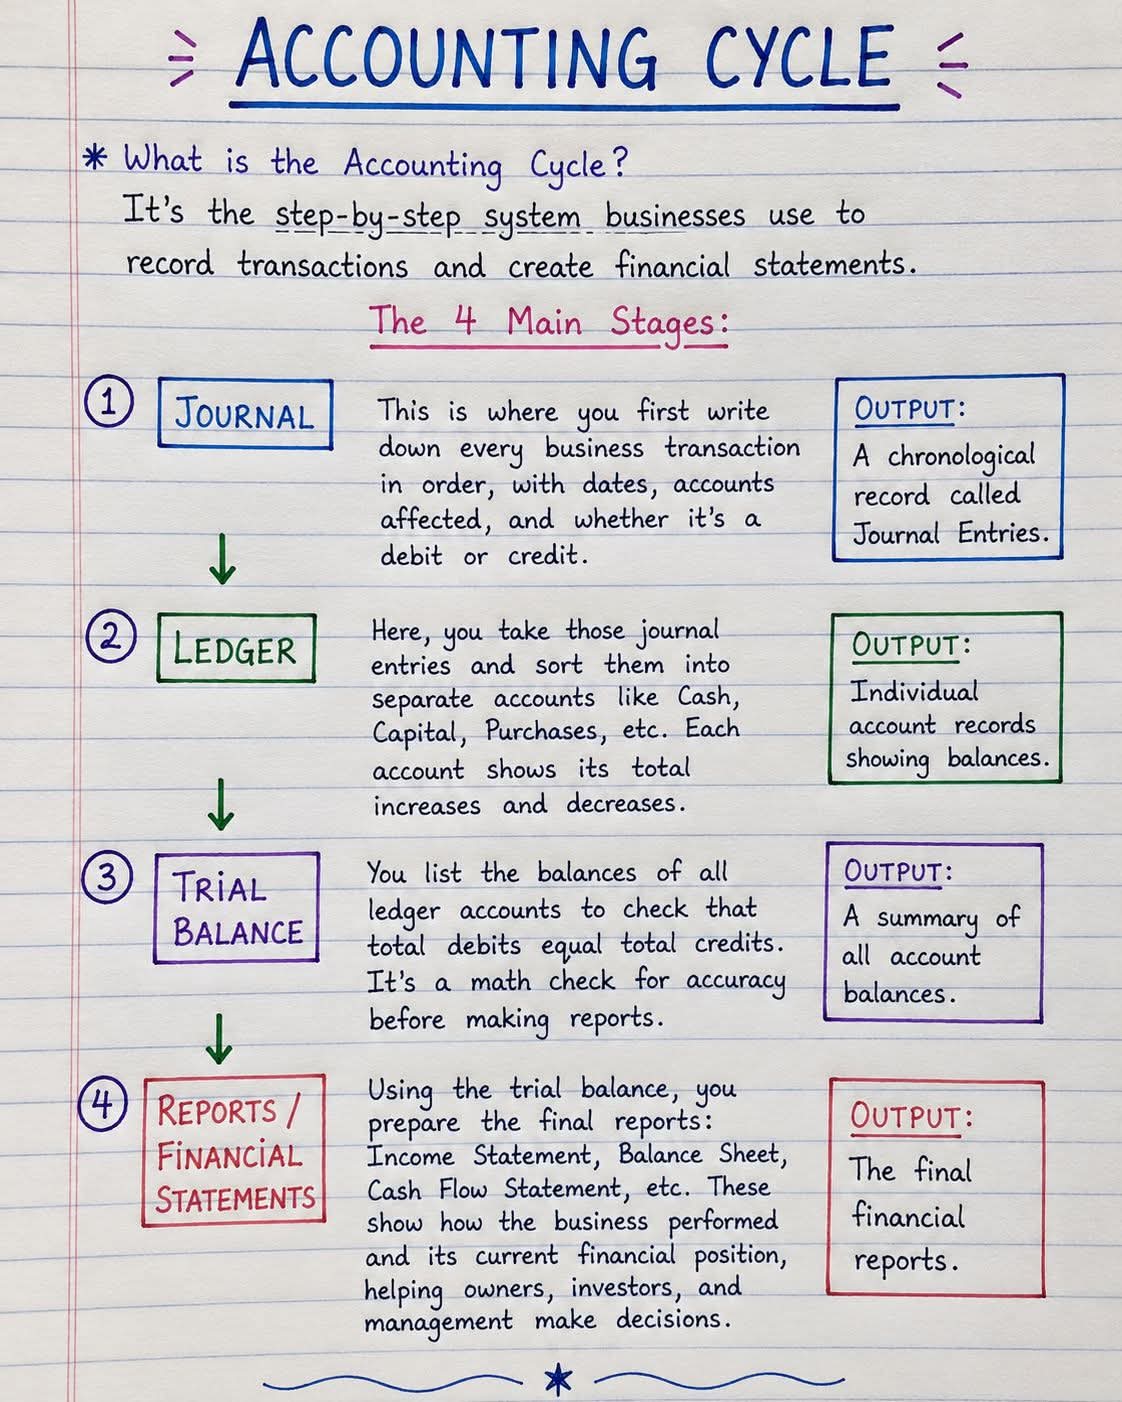 ACCOUNTING CYCLE
* What is the Accounting Cycle?
It's the step-by-step system businesses use to
record transactions and create financial statements.
The 4 Main Stages:
1
JOURNAL
This is where you first write
down every business transaction
in order, with dates, accounts
affected, and whether it's a
debit or credit.
OUTPUT:
A chronological
record called
Journal Entries.
2
LEDGER
Here, you take those journal
entries and sort them into
separate accounts like Cash,
Capital, Purchases, etc. Each
account shows its total
increases and decreases.
OUTPUT:
Individual
account records
showing balances.
3
TRIAL
BALANCE
You list the balances of all
ledger accounts to check that
total debits equal total credits.
It's a math check for accuracy
before making reports.
OUTPUT:
A summary of
all account
balances.
4
REPORTS /
FINANCIAL
STATEMENTS
Using the trial balance, you
prepare the final reports:
Income Statement, Balance Sheet,
Cash Flow Statement, etc. These
show how the business performed
and its current financial position,
helping owners, investors, and
management make decisions.
OUTPUT:
The final
financial
reports.